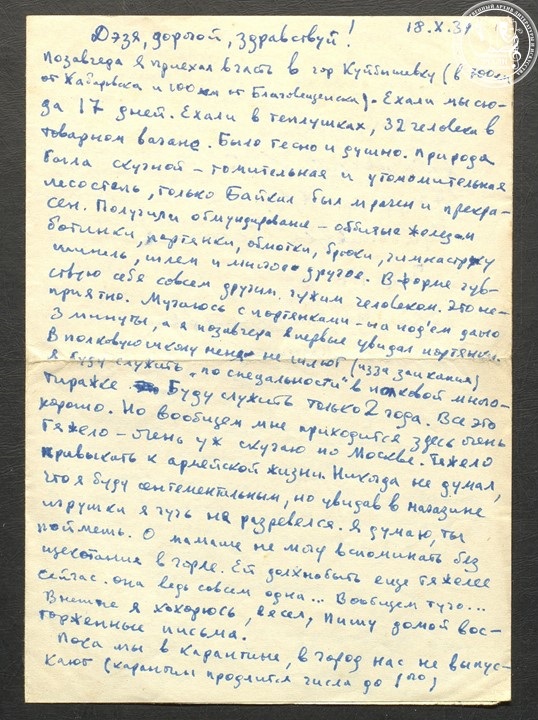 Дэзя, дорогой, здравствуй! 18.X.39
Позавчера я приехал в часть в гор Куйбышевку (в 700км
от Хабаровска и 100км от Благовещенска). Ехали мы сю-
да 17 дней. Ехали в теплушках, 32 человека в
товарном вагоне. Было тесно и душно. Природа
была скучной – томительная и утомительная
лесостепь, только Байкал был мрачен и прекра-
сен. Получили обмундирование – оббитые железом
ботинки, портянки, обмотки, брюки, гимнастерку
шинель, шлем и многое другое. В форме чув-
ствую себя совсем другим, чужим человеком. Это не-
приятно. Мучаюсь с портянками – на под'ем дано
3 минуты, а я позавчера впервые увидал портянки.
В полковую школу меня не шлют (изза заикания)
Я буду служить „по специальности" в полковой много-
тиражке. Буду служить только 2 года. Все это
хорошо. Но вообщем мне приходится здесь очень
тяжело – очень уж скучаю по Москве. Тяжело
привыкать к армейской жизни. Никогда не думал,
что я буду сентементальным, но увидав в магазине
игрушки я чуть не разревелся. Я думаю, ты
поймешь. О мамаше не могу вспоминать без
щекотания в горле. Ей должнобыть еще тяжелее
сейчас. она ведь совсем одна... Вообщем туго...
Внешне я хохорюсь, весел, пишу домой вос-
торженные письма.
Пока мы в карантине, в город нас не выпус-
кают (карантин продлится числа до